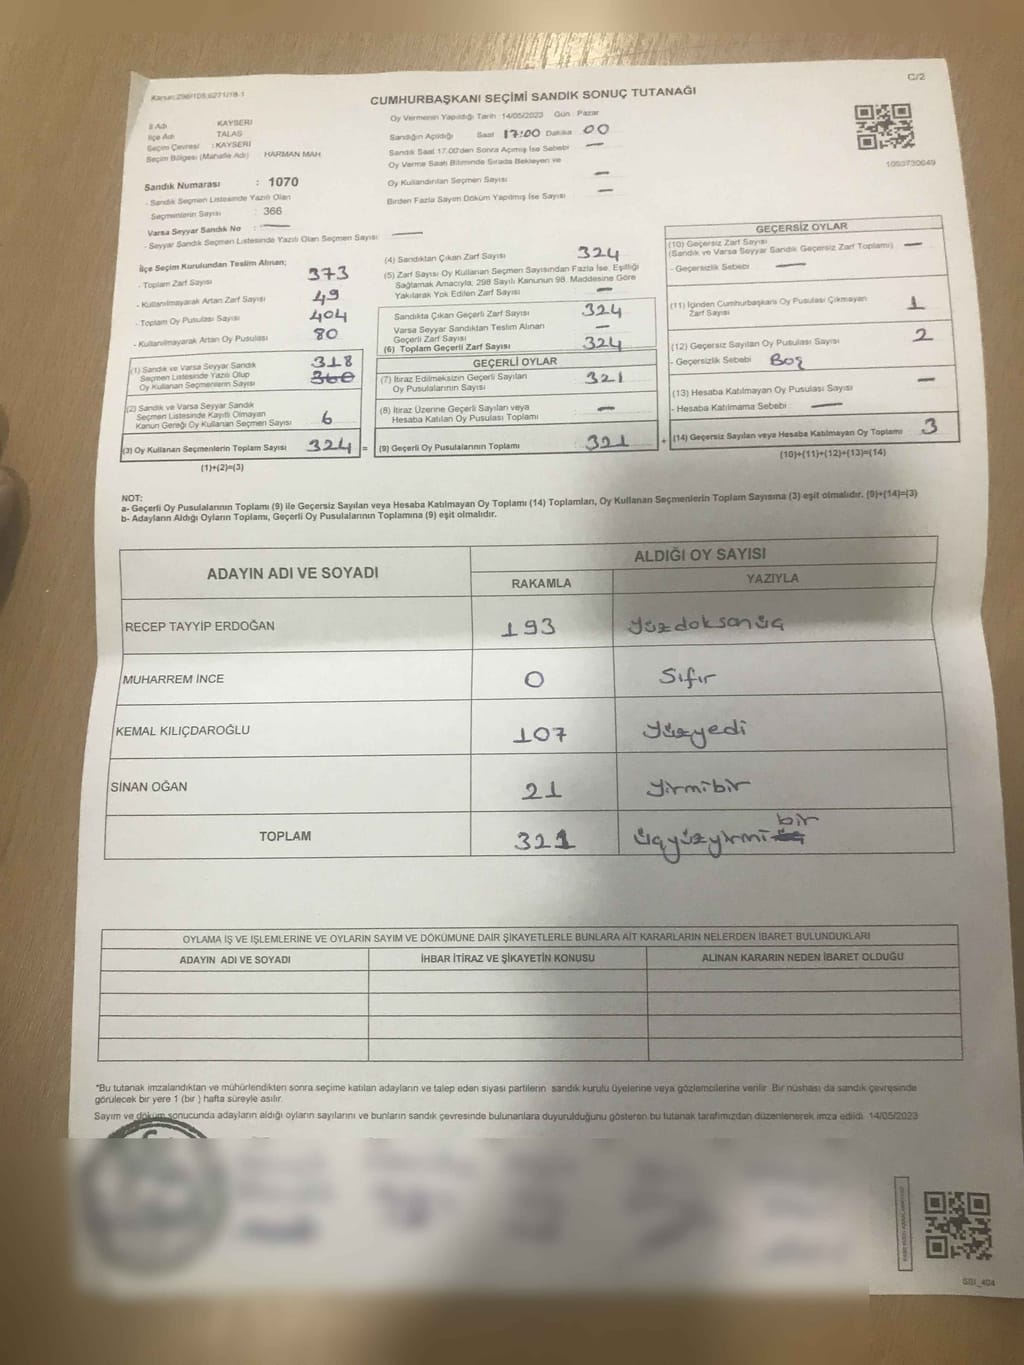 Kanun:298/105;6271/18-1
C/2
CUMHURBAŞKANI SEÇİMİ SANDIK SONUÇ TUTANAĞI
1093730649
İl Adı KAYSERİ
İlçe Adı TALAS
Seçim Çevresi : KAYSERİ
Seçim Bölgesi (Mahalle Adı) HARMAN MAH.
Sandık Numarası : 1070
- Sandık Seçmen Listesinde Yazılı Olan
Seçmenlerin Sayısı : 366
Varsa Seyyar Sandık No : —
- Seyyar Sandık Seçmen Listesinde Yazılı Olan Seçmen Sayısı: —
Oy Vermenin Yapıldığı Tarih :14/05/2023 Gün : Pazar
Sandığın Açıldığı Saat 17:00 Dakika 00
Sandık Saat 17.00'den Sonra Açılmış İse Sebebi —
Oy Verme Saati Bitiminde Sırada Bekleyen ve
Oy Kullandırılan Seçmen Sayısı —
Birden Fazla Sayım Döküm Yapılmış İse Sayısı —
İlçe Seçim Kurulundan Teslim Alınan;
- Toplam Zarf Sayısı 373
- Kullanılmayarak Artan Zarf Sayısı 49
- Toplam Oy Pusulası Sayısı 404
- Kullanılmayarak Artan Oy Pusulası 80
(1) Sandık ve Varsa Seyyar Sandık
Seçmen Listesinde Yazılı Olup
Oy Kullanan Seçmenlerin Sayısı 318 360
(2) Sandık ve Varsa Seyyar Sandık
Seçmen Listesinde Kayıtlı Olmayan
Kanun Gereği Oy Kullanan Seçmen Sayısı 6
(3) Oy Kullanan Seçmenlerin Toplam Sayısı 324 =
(1)+(2)=(3)
(4) Sandıktan Çıkan Zarf Sayısı 324
(5) Zarf Sayısı Oy Kullanan Seçmen Sayısından Fazla İse, Eşitliği
Sağlamak Amacıyla, 298 Sayılı Kanunun 98. Maddesine Göre
Yakılarak Yok Edilen Zarf Sayısı —
Sandıkta Çıkan Geçerli Zarf Sayısı 324
Varsa Seyyar Sandıktan Teslim Alınan
Geçerli Zarf Sayısı —
(6) Toplam Geçerli Zarf Sayısı 324
GEÇERLİ OYLAR
(7) İtiraz Edilmeksizin Geçerli Sayılan
Oy Pusulalarının Sayısı 321
(8) İtiraz Üzerine Geçerli Sayılan veya
Hesaba Katılan Oy Pusulası Toplamı —
(9) Geçerli Oy Pusulalarının Toplamı 321 +
GEÇERSİZ OYLAR
(10) Geçersiz Zarf Sayısı
(Sandık ve Varsa Seyyar Sandık Geçersiz Zarf Toplamı) —
- Geçersizlik Sebebi : —
(11) İçinden Cumhurbaşkanı Oy Pusulası Çıkmayan
Zarf Sayısı 1
(12) Geçersiz Sayılan Oy Pusulası Sayısı 2
- Geçersizlik Sebebi Boş
(13) Hesaba Katılmayan Oy Pusulası Sayısı —
- Hesaba Katılmama Sebebi : —
(14) Geçersiz Sayılan veya Hesaba Katılmayan Oy Toplamı 3
(10)+(11)+(12)+(13)=(14)
NOT:
a- Geçerli Oy Pusulalarının Toplamı (9) ile Geçersiz Sayılan veya Hesaba Katılmayan Oy Toplamı (14) Toplamları, Oy Kullanan Seçmenlerin Toplam Sayısına (3) eşit olmalıdır. (9)+(14)=(3)
b- Adayların Aldığı Oyların Toplamı, Geçerli Oy Pusulalarının Toplamına (9) eşit olmalıdır.
ADAYIN ADI VE SOYADI ALDIĞI OY SAYISI
RAKAMLA YAZIYLA
RECEP TAYYİP ERDOĞAN 193 Yüzdoksanüç
MUHARREM İNCE 0 Sıfır
KEMAL KILIÇDAROĞLU 107 Yüzyedi
SİNAN OĞAN 21 Yirmibir
TOPLAM 321 üçyüzyirmi üç bir
OYLAMA İŞ VE İŞLEMLERİNE VE OYLARIN SAYIM VE DÖKÜMÜNE DAİR ŞİKAYETLERLE BUNLARA AİT KARARLARIN NELERDEN İBARET BULUNDUKLARI
ADAYIN ADI VE SOYADI İHBAR İTİRAZ VE ŞİKAYETİN KONUSU ALINAN KARARIN NEDEN İBARET OLDUĞU
*Bu tutanak imzalandıktan ve mühürlendikten sonra seçime katılan adayların ve talep eden siyasi partilerin sandık kurulu üyelerine veya gözlemcilerine verilir. Bir nüshası da sandık çevresinde
görülecek bir yere 1 (bir ) hafta süreyle asılır.
Sayım ve döküm sonucunda adayların aldığı oyların sayılarını ve bunların sandık çevresinde bulunanlara duyurulduğunu gösteren bu tutanak tarafımızdan düzenlenerek imza edildi. 14/05/2023
SBI_404